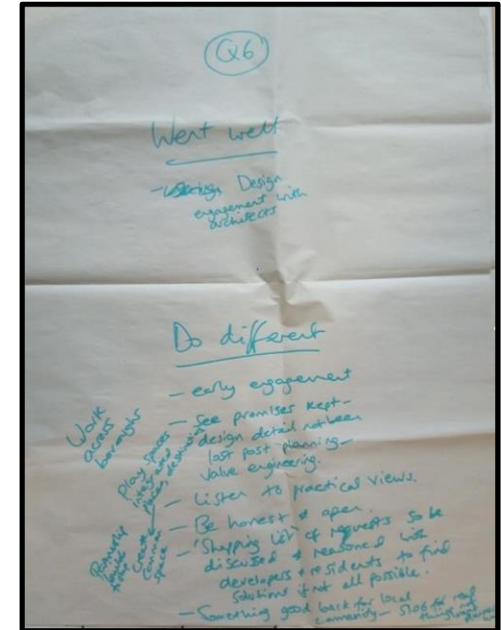 Q6
Went well
- Design
engagement with
architects
Do different
- early engagement
- See promises kept -
design detail not been
lost post planning -
value engineering.
- Listen to practical views.
- Be honest & open.
- 'Shopping list' of requests to be
discussed & reasoned with
developers & residents to find
solutions if not all possible.
- Something good back for local
community -
Work
across
boroughs
play spaces
integrated
places, destination
Create
common
space
Partnership
build